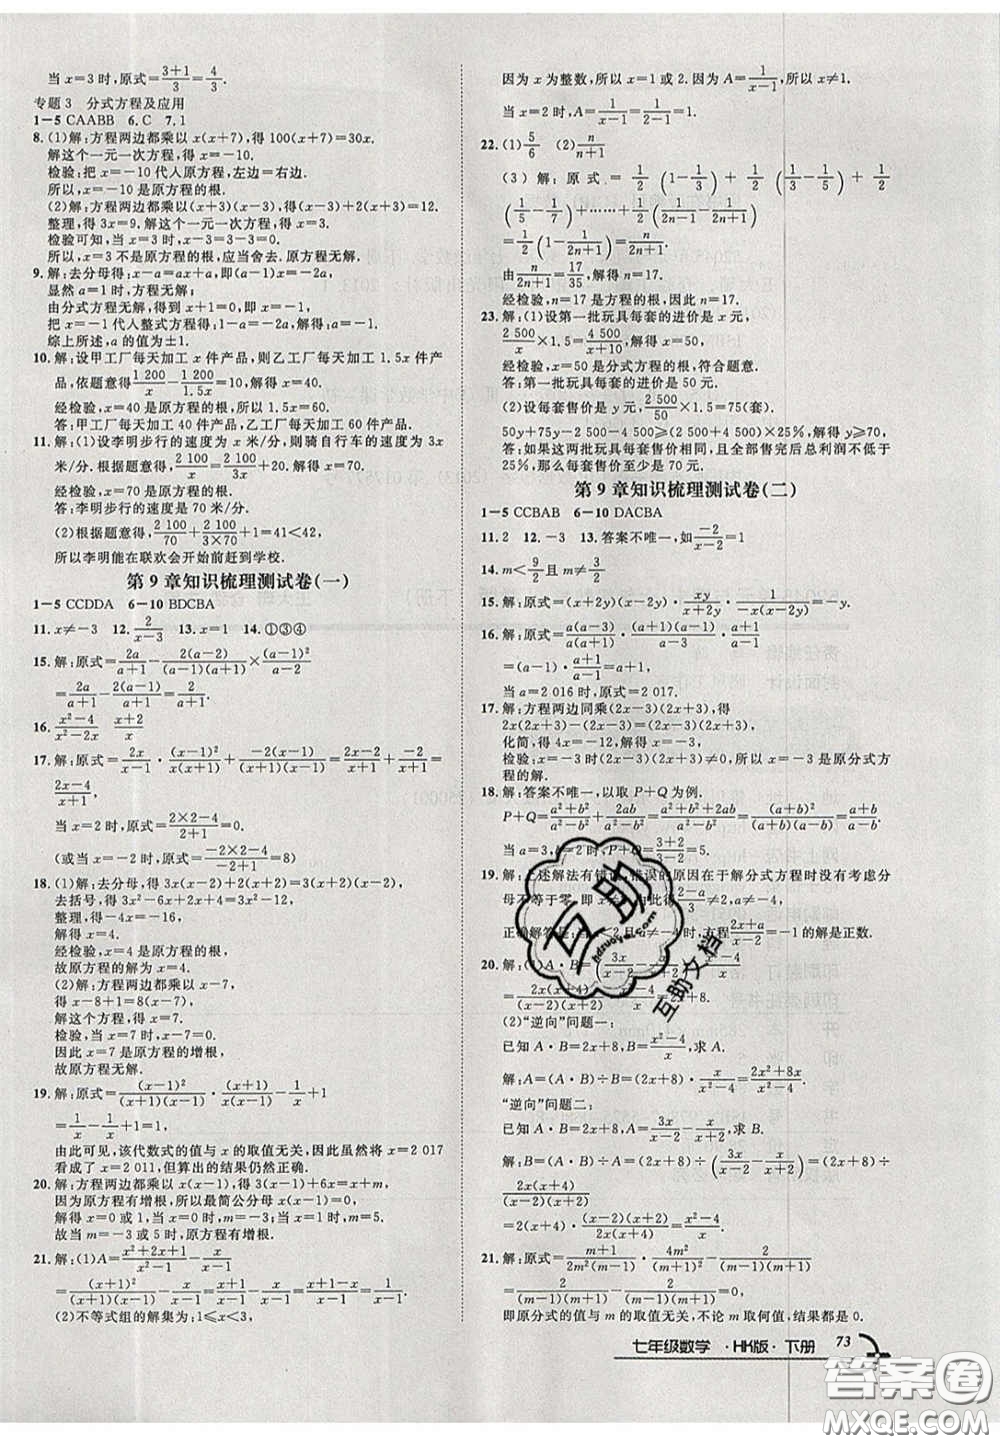 当 x=3 时,原式=(3+1)/3=4/3.
专题 3 分式方程及应用
1—5 CAABB 6.C 7.1
8.(1)解:方程两边都乘以 x(x+7),得 100(x+7)=30x.
解这个一元一次方程,得 x=-10.
检验:把 x=-10 代人原方程,左边=右边.
所以,x=-10 是原方程的根.
(2)解:方程两边都乘以(x+3)(x-3),得(x-3)+2(x+3)=12.
整理,得 3x=9. 解这个一元一次方程,得 x=3.
检验可知,当 x=3 时,x-3=0,
所以,x=3 不是原方程的根,应当舍去. 原方程无解.
9. 解:去分母得:x-a=ax+a,即(a-1)x=-2a.
显然 a=1 时,方程无解.
由分式方程无解,得到 x+1=0,即 x=-1,
把 x=-1 代人整式方程得:1-a=-2a,解得:a=-1.
综上所述,a 的值为±1.
10. 解:设甲工厂每天加工 x 件产品,则乙工厂每天加工 1.5x 件产
品,依题意得(1 200)/x-(1 200)/(1.5x)=10,解得:x=40.
经检验,x=40 是原方程的根,所以 1.5x=60.
答:甲工厂每天加工 40 件产品,乙工厂每天加工 60 件产品.
11. 解:(1)设李明步行的速度为 x 米/分,则骑自行车的速度为 3x
米/分. 根据题意,得(2 100)/x-(2 100)/(3x)=20,得 x=70.
经检验,x=70 是原方程的解,
答:李明步行的速度是 70 米/分.
(2)根据题意,得(2 100)/70+(2 100)/(3×70)+1=41<42,
所以李明能在联欢会开始前赶到学校.
第 9 章知识梳理测试卷(一)
1—5 CCDDA 6—10 BDCBA
11. x≠-3 12. 2/(x-3) 13. x=1 14. ①③④
15. 解:原式=2a/(a+1)-2(a-2)/((a-1)(a+1))×(a-1)²/(a-2)
=2a/(a+1)-2(a-1)/(a+1)=(2a-2(a-1))/(a+1)=2/(a+1).
16. (x²-4)/(x²-2x) (x+2)/x
17. 解:原式=2x/(x-1)·(x-1)²/(x+1)+(-2(x-1))/(x+1)=(2x-2)/(x+1)·(x-1)=
(2x-4)/(x+1),
当 x=2 时,原式=(2×2-4)/(2+1)=0.
(或当 x=-2 时,原式=(-2×2-4)/(-2+1)=8)
18. (1)解:去分母,得 3x(x-2)+2(x+2)=3(x+2)(x-2),
去括号,得 3x²-6x+2x+4=3x²-12,
整理,得-4x=-16,
解得 x=4.
经检验,x=4 是原方程的根,
故原方程的解为 x=4.
(2)解:方程两边都乘以 x-7,
得 x-8+1=8(x-7).
解这个方程,得 x=7.
检验,当 x=7 时,x-7=0,
因此 x=7 是原方程的增根,
故原方程无解.
19. 解:原式=(x-1)²/((x+1)(x-1))·x(x+1)/(x-1)·1/x+1
=1-1+1
=1,
由此可见,该代数式的值与 x 的取值无关,因此虽然将 x=2 017
看成了 x=2 011,但算出的结果仍然正确.
20. 解:方程两边都乘以 x(x-1),得 3(x-1)+6x=x+m,
因为原方程有增根,所以最简公分母 x(x-1)=0,
解得 x=0 或 1,当 x=0 时,m=-3;当 x=1 时,m=5.
故当 m=-3 或 5 时,原方程有增根.
21. 解:(1)A=(x²+2x+1)/(x²-1)-x/(x-1)
=(x+1)²/((x+1)(x-1))-x/(x-1)=(x+1)/(x-1)-x/(x-1)=1/(x-1).
(2)不等式组的解集为:1≤x<3,
因为 x 为整数,所以 x=1 或 2. 因为 A=1/(x-1),所以 x≠1.
当 x=2 时,A=1/(x-1)=1/(2-1)=1.
22. (1)5/6 (2)n/(n+1)
(3)解:原式=1/2(1-1/3)+1/2(1/3-1/5)+1/2
(1/5-1/7)+……+1/2(1/(2n-1)-1/(2n+1))
=1/2(1-1/(2n+1))=n/(2n+1).
由n/(2n+1)=17/35,解得 n=17.
经检验,n=17 是方程的根,因此 n=17.
23. 解:(1)设第一批玩具每套的进价是 x 元,
(2 500)/x×1.5=(4 500)/(x+10),解得 x=50,
经检验,x=50 是分式方程的解,符合题意.
答:第一批玩具每套的进价是 50 元.
(2)设每套售价是 y 元,(2 500)/50×1.5=75(套).
50y+75y-2500-4500≥(2500+4500)×25%,解得 y≥70.
答:如果这两批玩具每套售价相同,且全部售完后总利润不低于
25%,那么每套售价至少是 70 元.
第 9 章知识梳理测试卷(二)
1—5 CCBAB 6—10 DACBA
11. 2 12. -3 13. 答案不唯一,如(-2)/(x-2)=1
14. m<9/2且 m≠3/2
15. 解:原式=(x+2y)(x-2y)·xy/(x+2y)·1/xy=x-2y.
16. 解:原式=a(a-3)/(a-3)·(a+1)(a-1)/(a-3)·(a+1)/(a-1)
=(a-1)·(a+1)/(a-1)=a+1.
当 a=2 016 时,原式=2 017.
17. 解:方程两边同乘(2x-3)(2x+3),得
2x(2x+3)-(2x-3)=(2x-3)(2x+3),
化简,得 4x=-12,解得 x=-3.
检验:x=-3 时,(2x-3)(2x+3)≠0,所以 x=-3 是原分式方
程的解.
18. 解:答案不唯一,以取 P+Q 为例.
P+Q=(a²+b²)/(a²-b²)+2ab/(a²-b²)=(a²+b²+2ab)/(a²-b²)=(a+b)²/((a+b)(a-b))=(a+b)/(a-b).
当 a=3,b=2 时,P+Q=(3+2)/(3-2)=5.
19. 解:上述解法有错误,错误的原因在于解分式方程时没有考虑分
a≠-4,
(2x+a)/(x-2)=-1 的解是正数.
(2)“逆向”问题一:
已知 A·B=2x+8,B=(x²-4)/x,求 A.
解:A=(A·B)÷B=(2x+8)·x/(x²-4)=(2x²+8x)/(x²-4).
“逆向”问题二:
已知 A·B=2x+8,A=3x/(x-2)-x/(x+2),求 B.
解:B=(A·B)÷A=(2x+8)÷(3x/(x-2)-x/(x+2))=(2x+8)÷
2x(x+4)/((x-2)(x+2))
=2(x+4)·(x-2)(x+2)/(2x(x+4))=(x²-4)/x.
21. 解:原式=(m+1)/(2m²(m-1))·4m²/(m+1)-2/(m-1)=2/(m-1)-2/(m-1)=0.
即原分式的值与 m 的取值无关,不论 m 取何值,结果都是 0.
七年级数学·HK版·下册 73
互助
hdzuoye.com
互助文档
答案圈
MXQE.COM